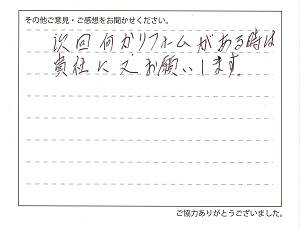 その他ご意見・ご感想をお聞かせください。
次回何かリフォームがある時は
貴社に又お願いします。
ご協力ありがとうございました。